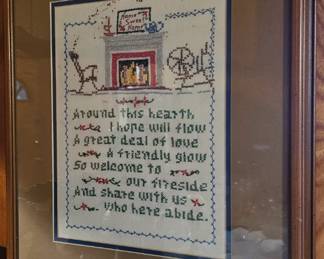 Home
Sweet
Home
Around this hearth
I hope will flow
A great deal of love
A friendly glow
So welcome to
our fireside
And share with us
Who here abide.